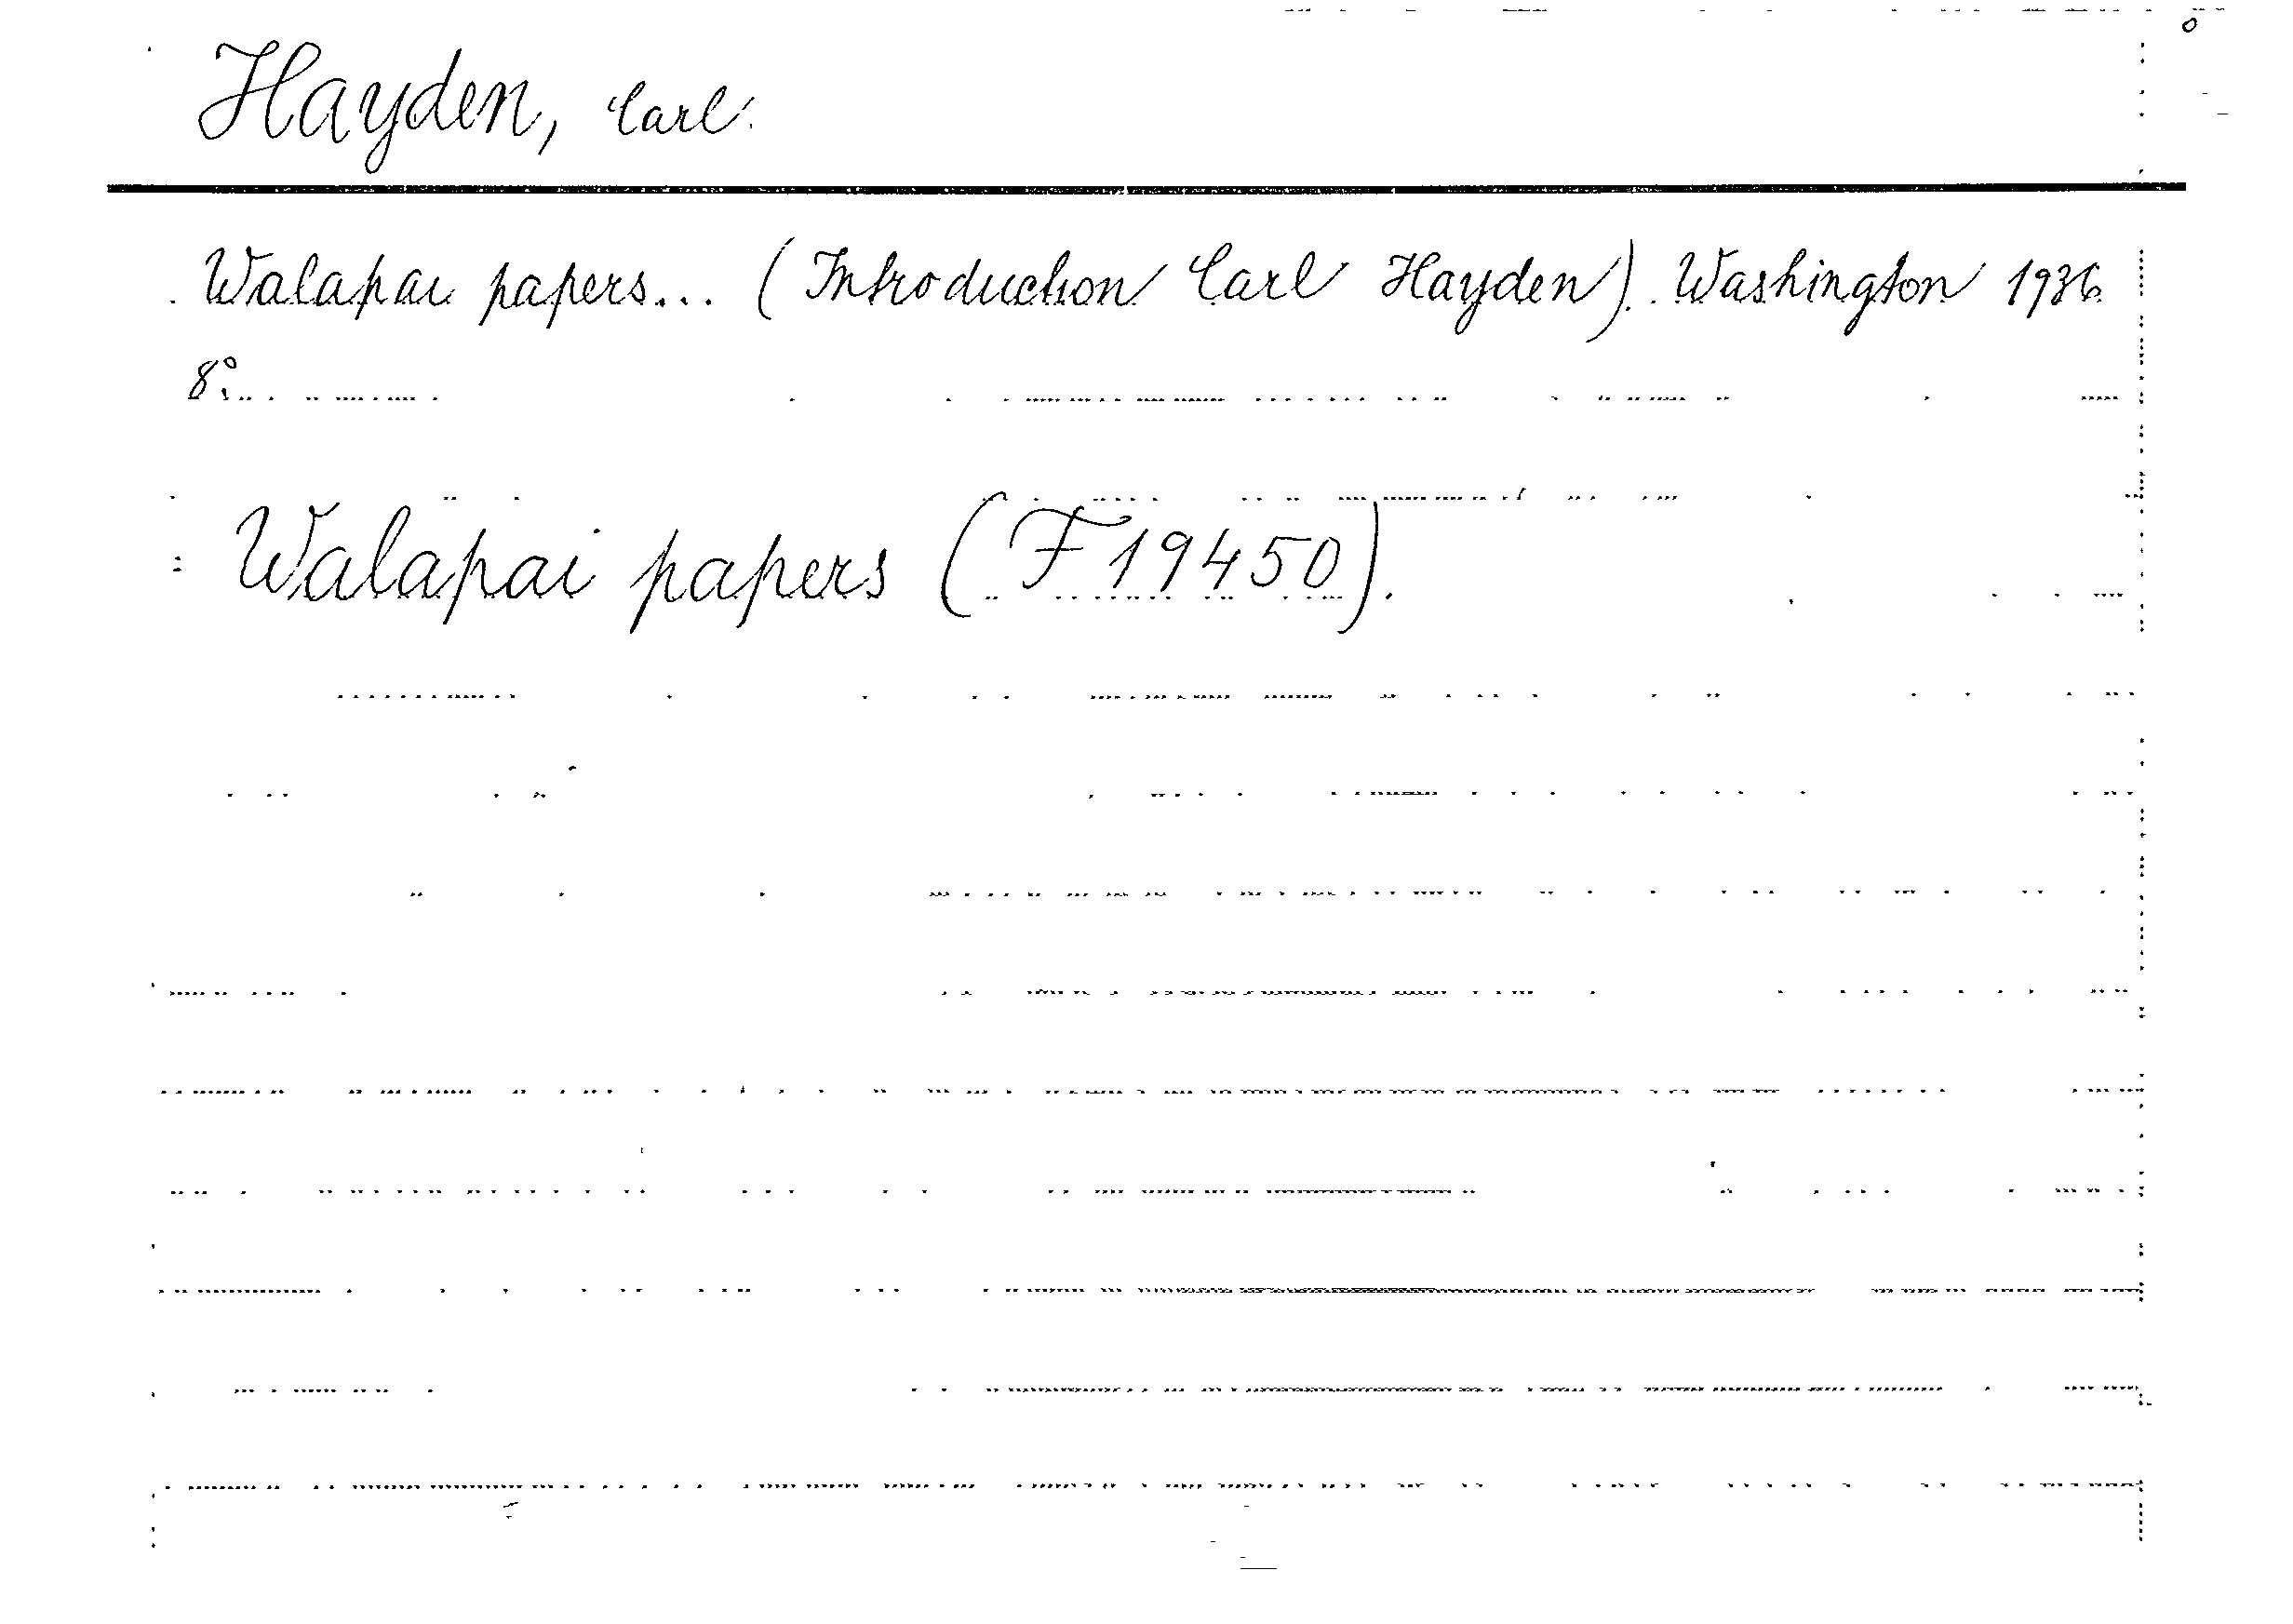 Hayden, Carl.
Walapai papers... (Introduction Carl Hayden). Washington 1936.
8°.
Walapai papers (F 19450).